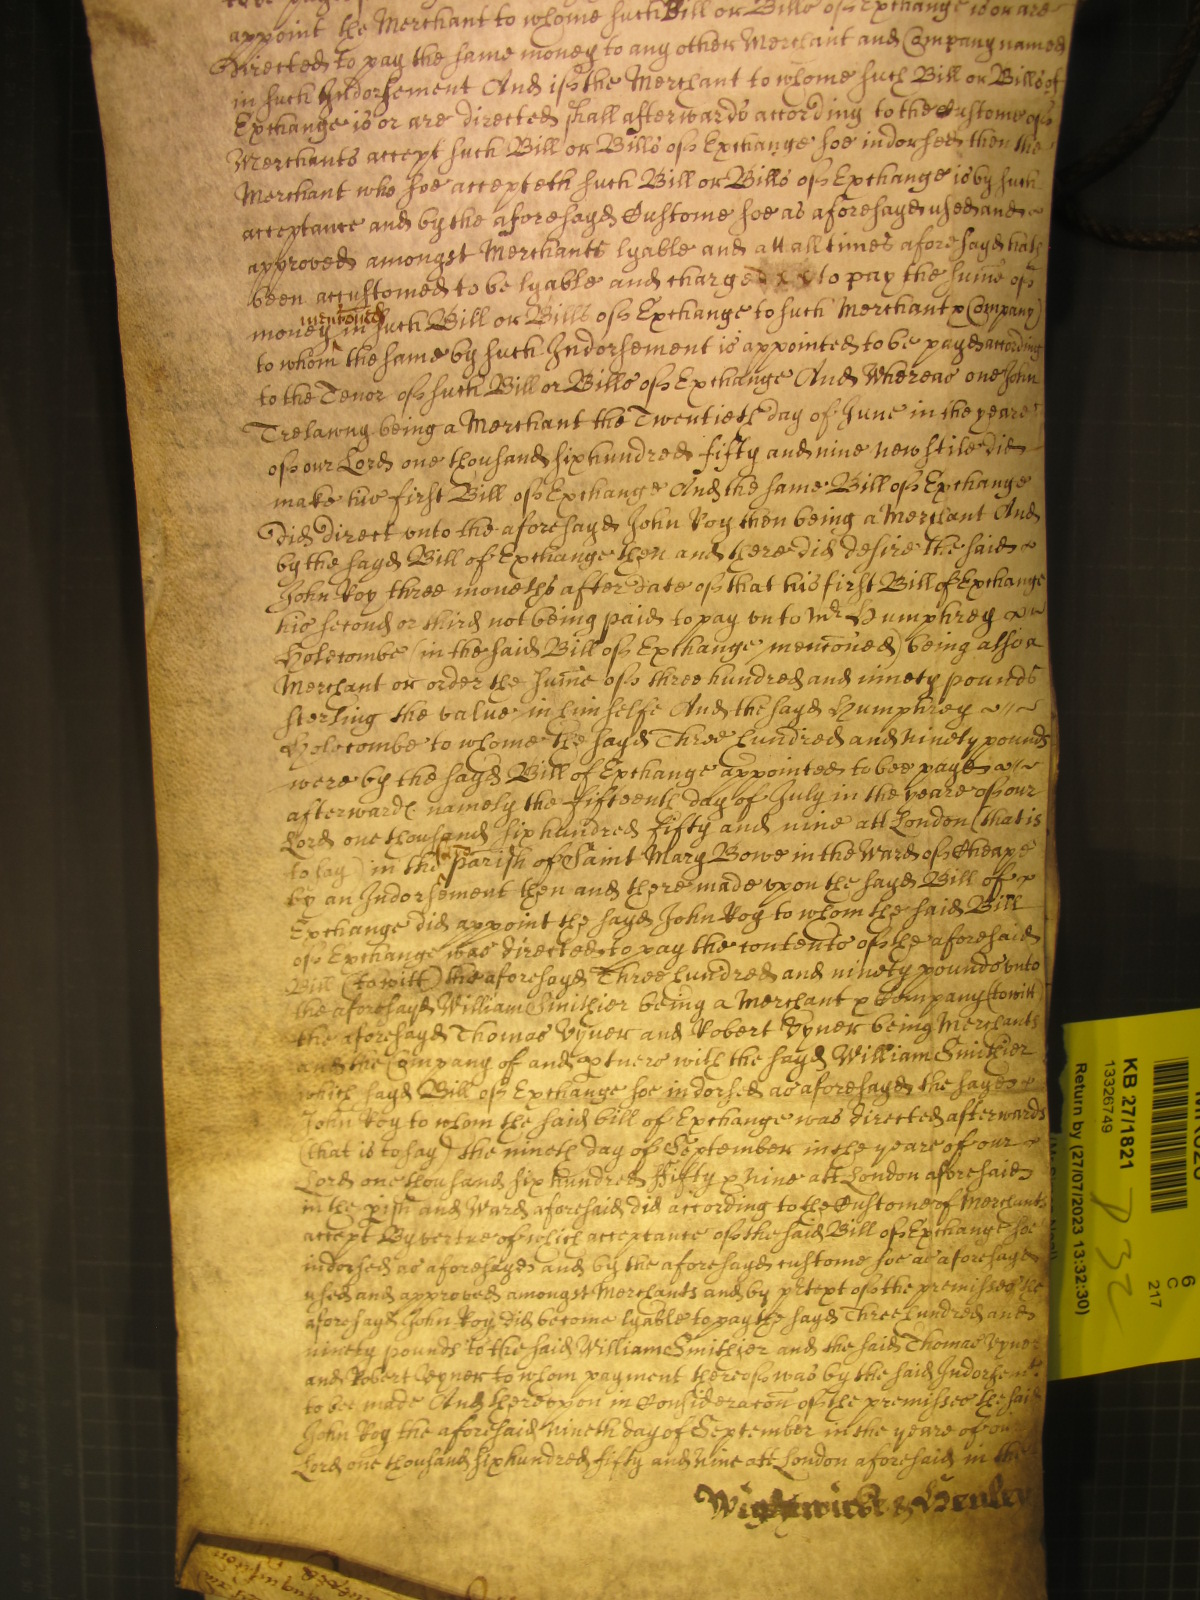 appoint the Merchant to whome such Bill or Bills of Exchange is or are
directed to pay the same money to any other Merchant and Company named
in such Indorsement And if the Merchant to whome such Bill or Bills of
Exchange is or are directed shall afterwards according to the Custome of
Merchants accept such Bill or Bills of Exchange soe indorsed then the
Merchant who soe accepteth such Bill or Bills of Exchange is by such
acceptance and by the aforesayd Custome soe as aforesayd used and
approved amongst Merchants lyable and att all times aforesayd hath
been accustomed to be lyable and charged to pay the sume of
menc̄oned
money in such Bill or Bills of Exchange to such Merchant & Company
to whom the same by such Indorsement is appointed to be payd according
to the Tenor of such Bill or Bills of Exchange And Whereas one John
Trelawny being a Merchant the Twentieth day of June in the yeare
of our Lord one thousand six hundred fifty and nine new stile did
make his first Bill of Exchange And the same Bill of Exchange
did direct vnto the aforesayd John Roy then being a Merchant And
by the sayd Bill of Exchange then and there did desire the said
John Roy three moneths after date of that his first Bill of Exchange
his second or third not being paid to pay vnto Mr Humphrey
Holecombe (in the said Bill of Exchange menc̄oned) being also a
Merchant or order the sum̄e of three hundred and ninety pounds
sterling the value in himselfe And the sayd Humphrey
Holecombe to whome the sayd Three hundred and ninety pounds
were by the sayd Bill of Exchange appointed to bee payd
afterwards namely the fifteenth day of July in the yeare of our
Lord one thousand six hundred fifty and nine att London (that is
to say) in the Parish of Saint Mary Bowe in the Ward of Cheape
by an Indorsement then and there made vpon the sayd Bill of
Exchange did appoint the sayd John Roy to whom the said Bill
of Exchange was directed to pay the contents of the aforesaid
Bill (to witt) the aforesayd Three hundred and ninety pounds vnto
the aforesayd William Smithier being a Merchant & Company (to witt)
the aforesayd Thomas Vyner and Robert Vyner being Merchants
and the Company of and ptners with the sayd William Smithier
which sayd Bill of Exchange soe indorsed as aforesayd the sayd
John Roy to whom the said bill of Exchange was directed afterwards
(that is to say) the nineth day of September in the yeare of our
Lord one thousand six hundred Fifty & Nine att London aforesaid
in the pish and Ward aforesaid did according to the Custome of Merchants
accept By vertue of which acceptance of the said Bill of Exchange soe
indorsed as aforesayd and by the aforesayd custome soe as aforesayd
used and approved amongst Merchants and by ptext of the premisses the
aforesayd John Roy did become lyable to pay the sayd Three hundred and
ninety pounds to the said William Smithier and the said Thomas Vyner
and Robert Vyner to whom payment thereof was by the said Indorsemt
to bee made And therevpon in Considerac̄on of the premisses the said
John Roy the aforesaid nineth day of September in the yeare of our
Lord one thousand six hundred fifty and Nine att London aforesaid in the
Wightwicke & Henley
KB 27/1821
13326749
Return by (27/07/2023 13:32:30)
6
C
217